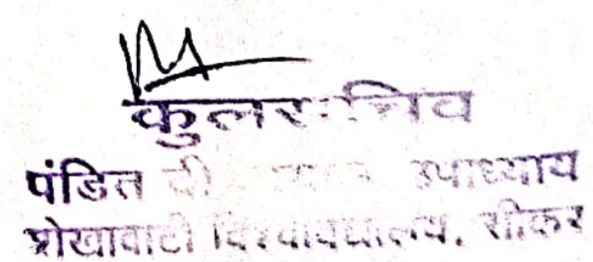 कुलसचिव
पंडित दी उपाध्याय
शेखावाटी विश्वविद्यालय, सीकर